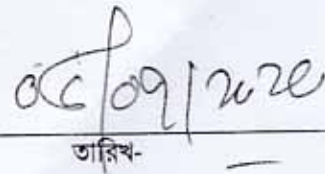 ০৫/০৭/২০২৫
তারিখ-